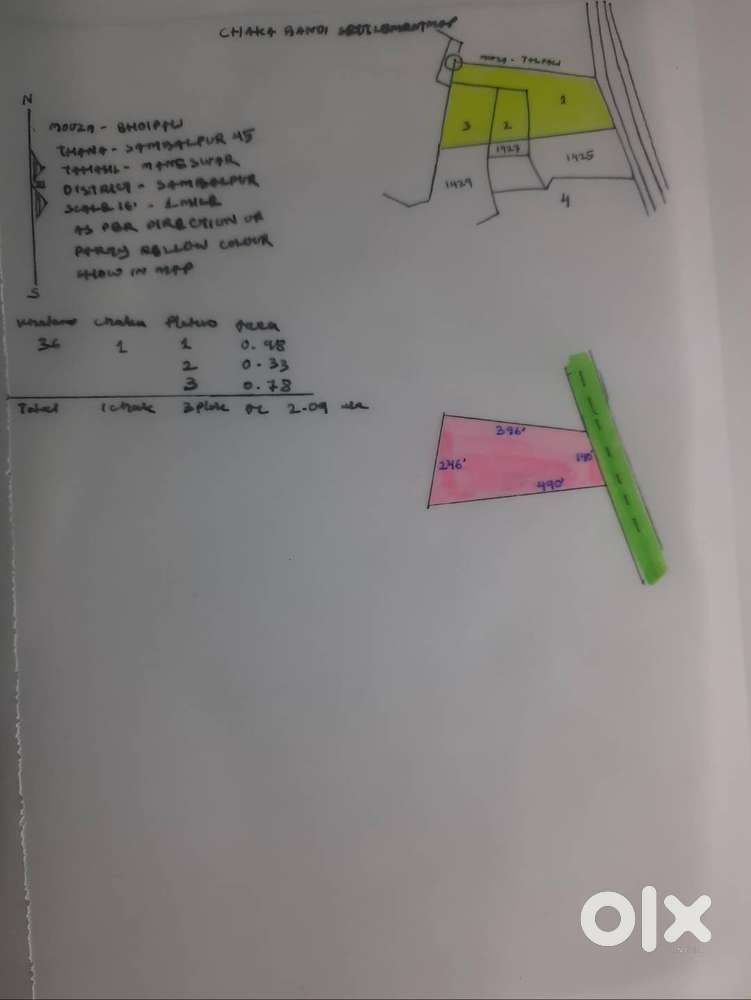 CHAKA BANDI SETTLEMENT MAP
N
MOUZA - BHOIPALI
THANA - SAMBALPUR 45
TAHASIL - MANESWAR
DISTRICT - SAMBALPUR
SCALE 16" - 1 MILE
AS PER DIRECTION OF
PARTY YELLOW COLOUR
SHOW IN MAP
S
MOUZA -
1
2
3
1427
1425
1429
4
Chaka Plot no Area
36 1 1 0.98
2 0.33
3 0.78
Total 1 chak 3 plot 2.09
396'
246'
140'
490'
olx